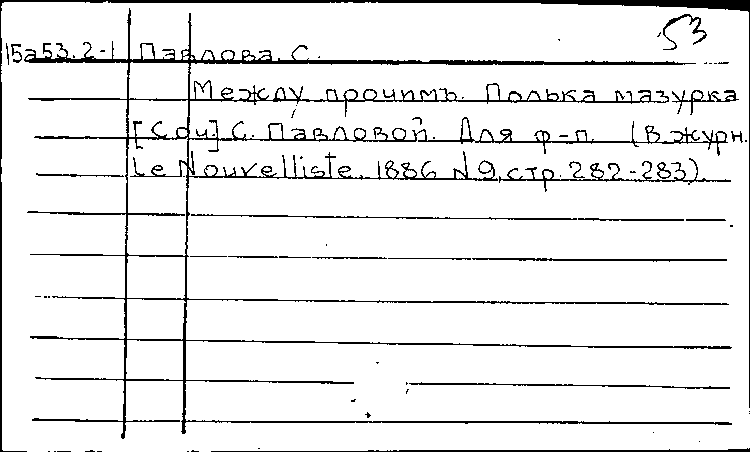 53
15а53.2-1 Павлова. С.
Между прочимъ. Полька мазурка
[Соч] С. Павловой. Для ф-п. (В журн.
Le Nouvelliste. 1886 N 9, стр. 282-283).